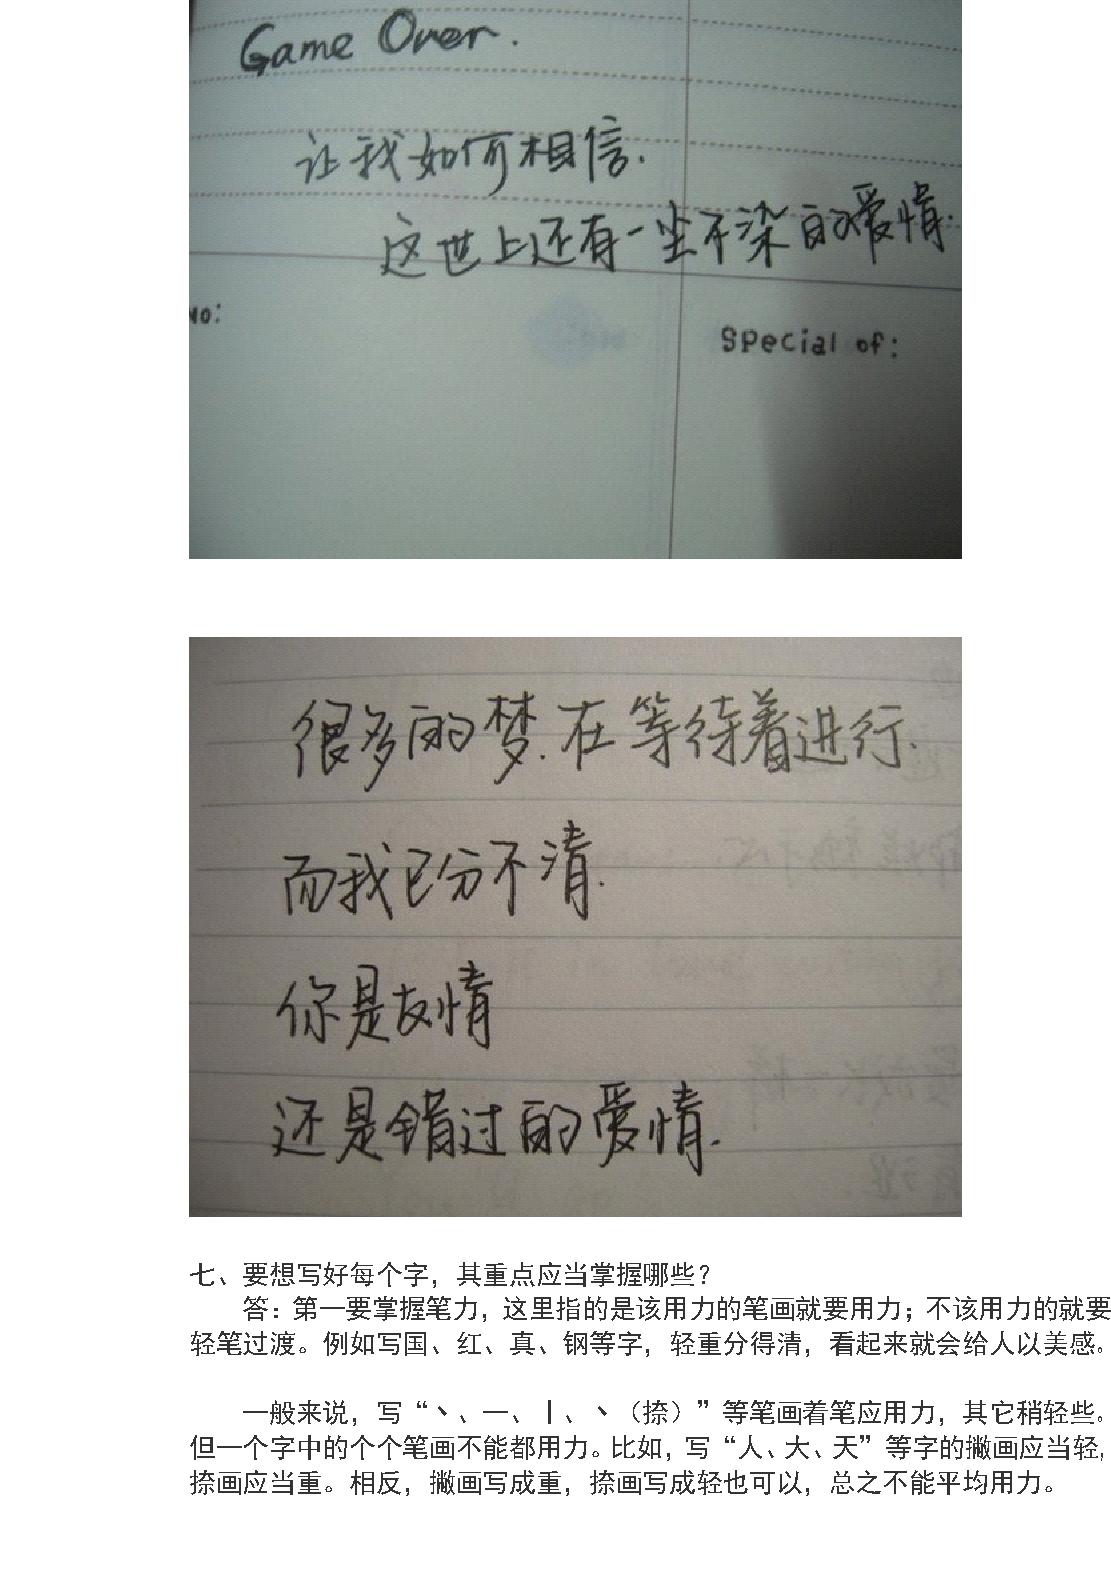 Game Over.
让我如何相信.
这世上还有一尘不染的爱情.
No:
Special of:
很多的梦.在等待着进行.
而我已分不清.
你是友情
还是错过的爱情.
七、要想写好每个字，其重点应当掌握哪些？
答：第一要掌握笔力，这里指的是该用力的笔画就要用力；不该用力的就要
轻笔过渡。例如写国、红、真、钢等字，轻重分得清，看起来就会给人以美感。
一般来说，写“丶、一、丨、丶（捺）”等笔画着笔应用力，其它稍轻些。
但一个字中的个个笔画不能都用力。比如，写“人、大、天”等字的撇画应当轻，
捺画应当重。相反，撇画写成重，捺画写成轻也可以，总之不能平均用力。